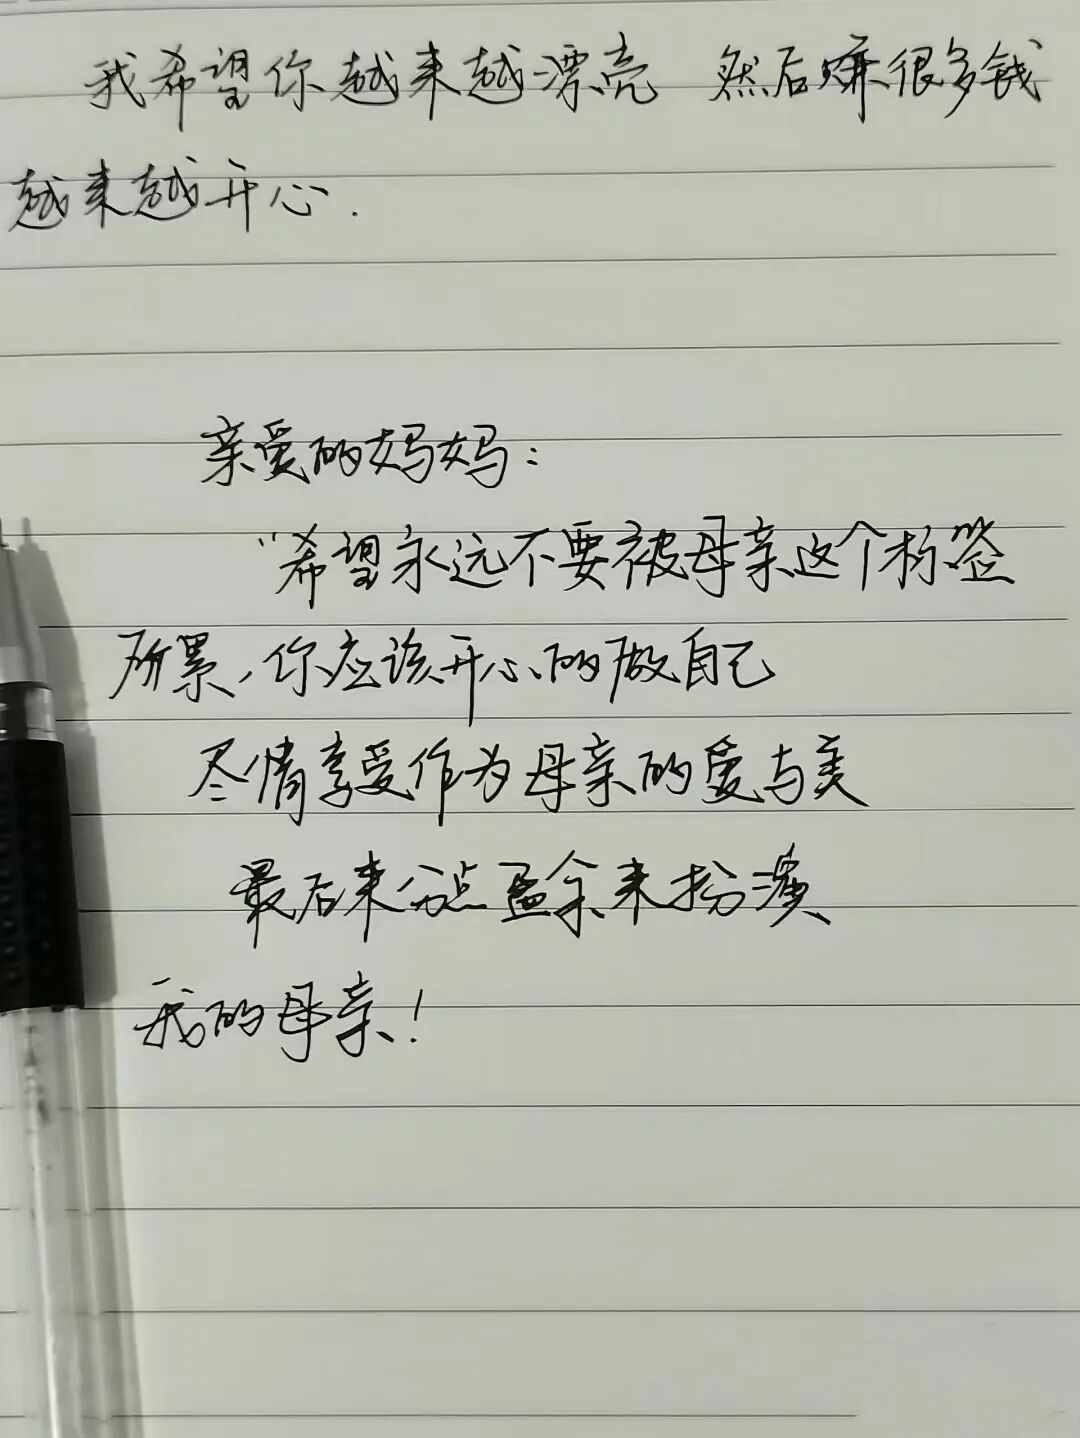 我希望你越来越漂亮 然后赚很多钱
越来越开心.
亲爱的妈妈:
“希望永远不要被母亲这个标签
所累,你应该开心的做自己
尽情享受作为母亲的爱与美
最后来分点盈余来扮演
我的母亲!